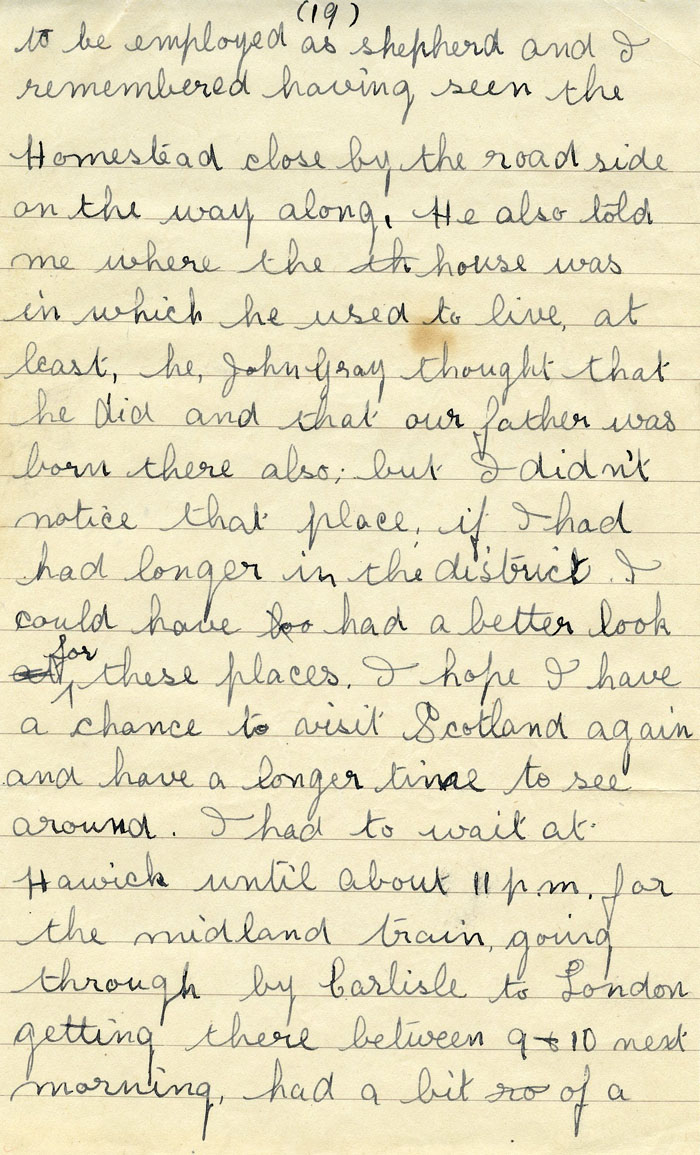 (19)
to be employed as shepherd and I
remembered having seen the
Homestead close by the road side
on the way along. He also told
me where the th house was
in which he used to live, at
least, he, John Gray thought that
he did and that our father was
born there also; but I didn't
notice that place, if I had
had longer in the district I
could have loo had a better look
for
at these places. I hope I have
a chance to visit Scotland again
and have a longer time to see
around. I had to wait at
Hawick until about 11 p.m. for
the midland train, going
through by Carlisle to London
getting there between 9 & 10 next
morning, had a bit ro of a